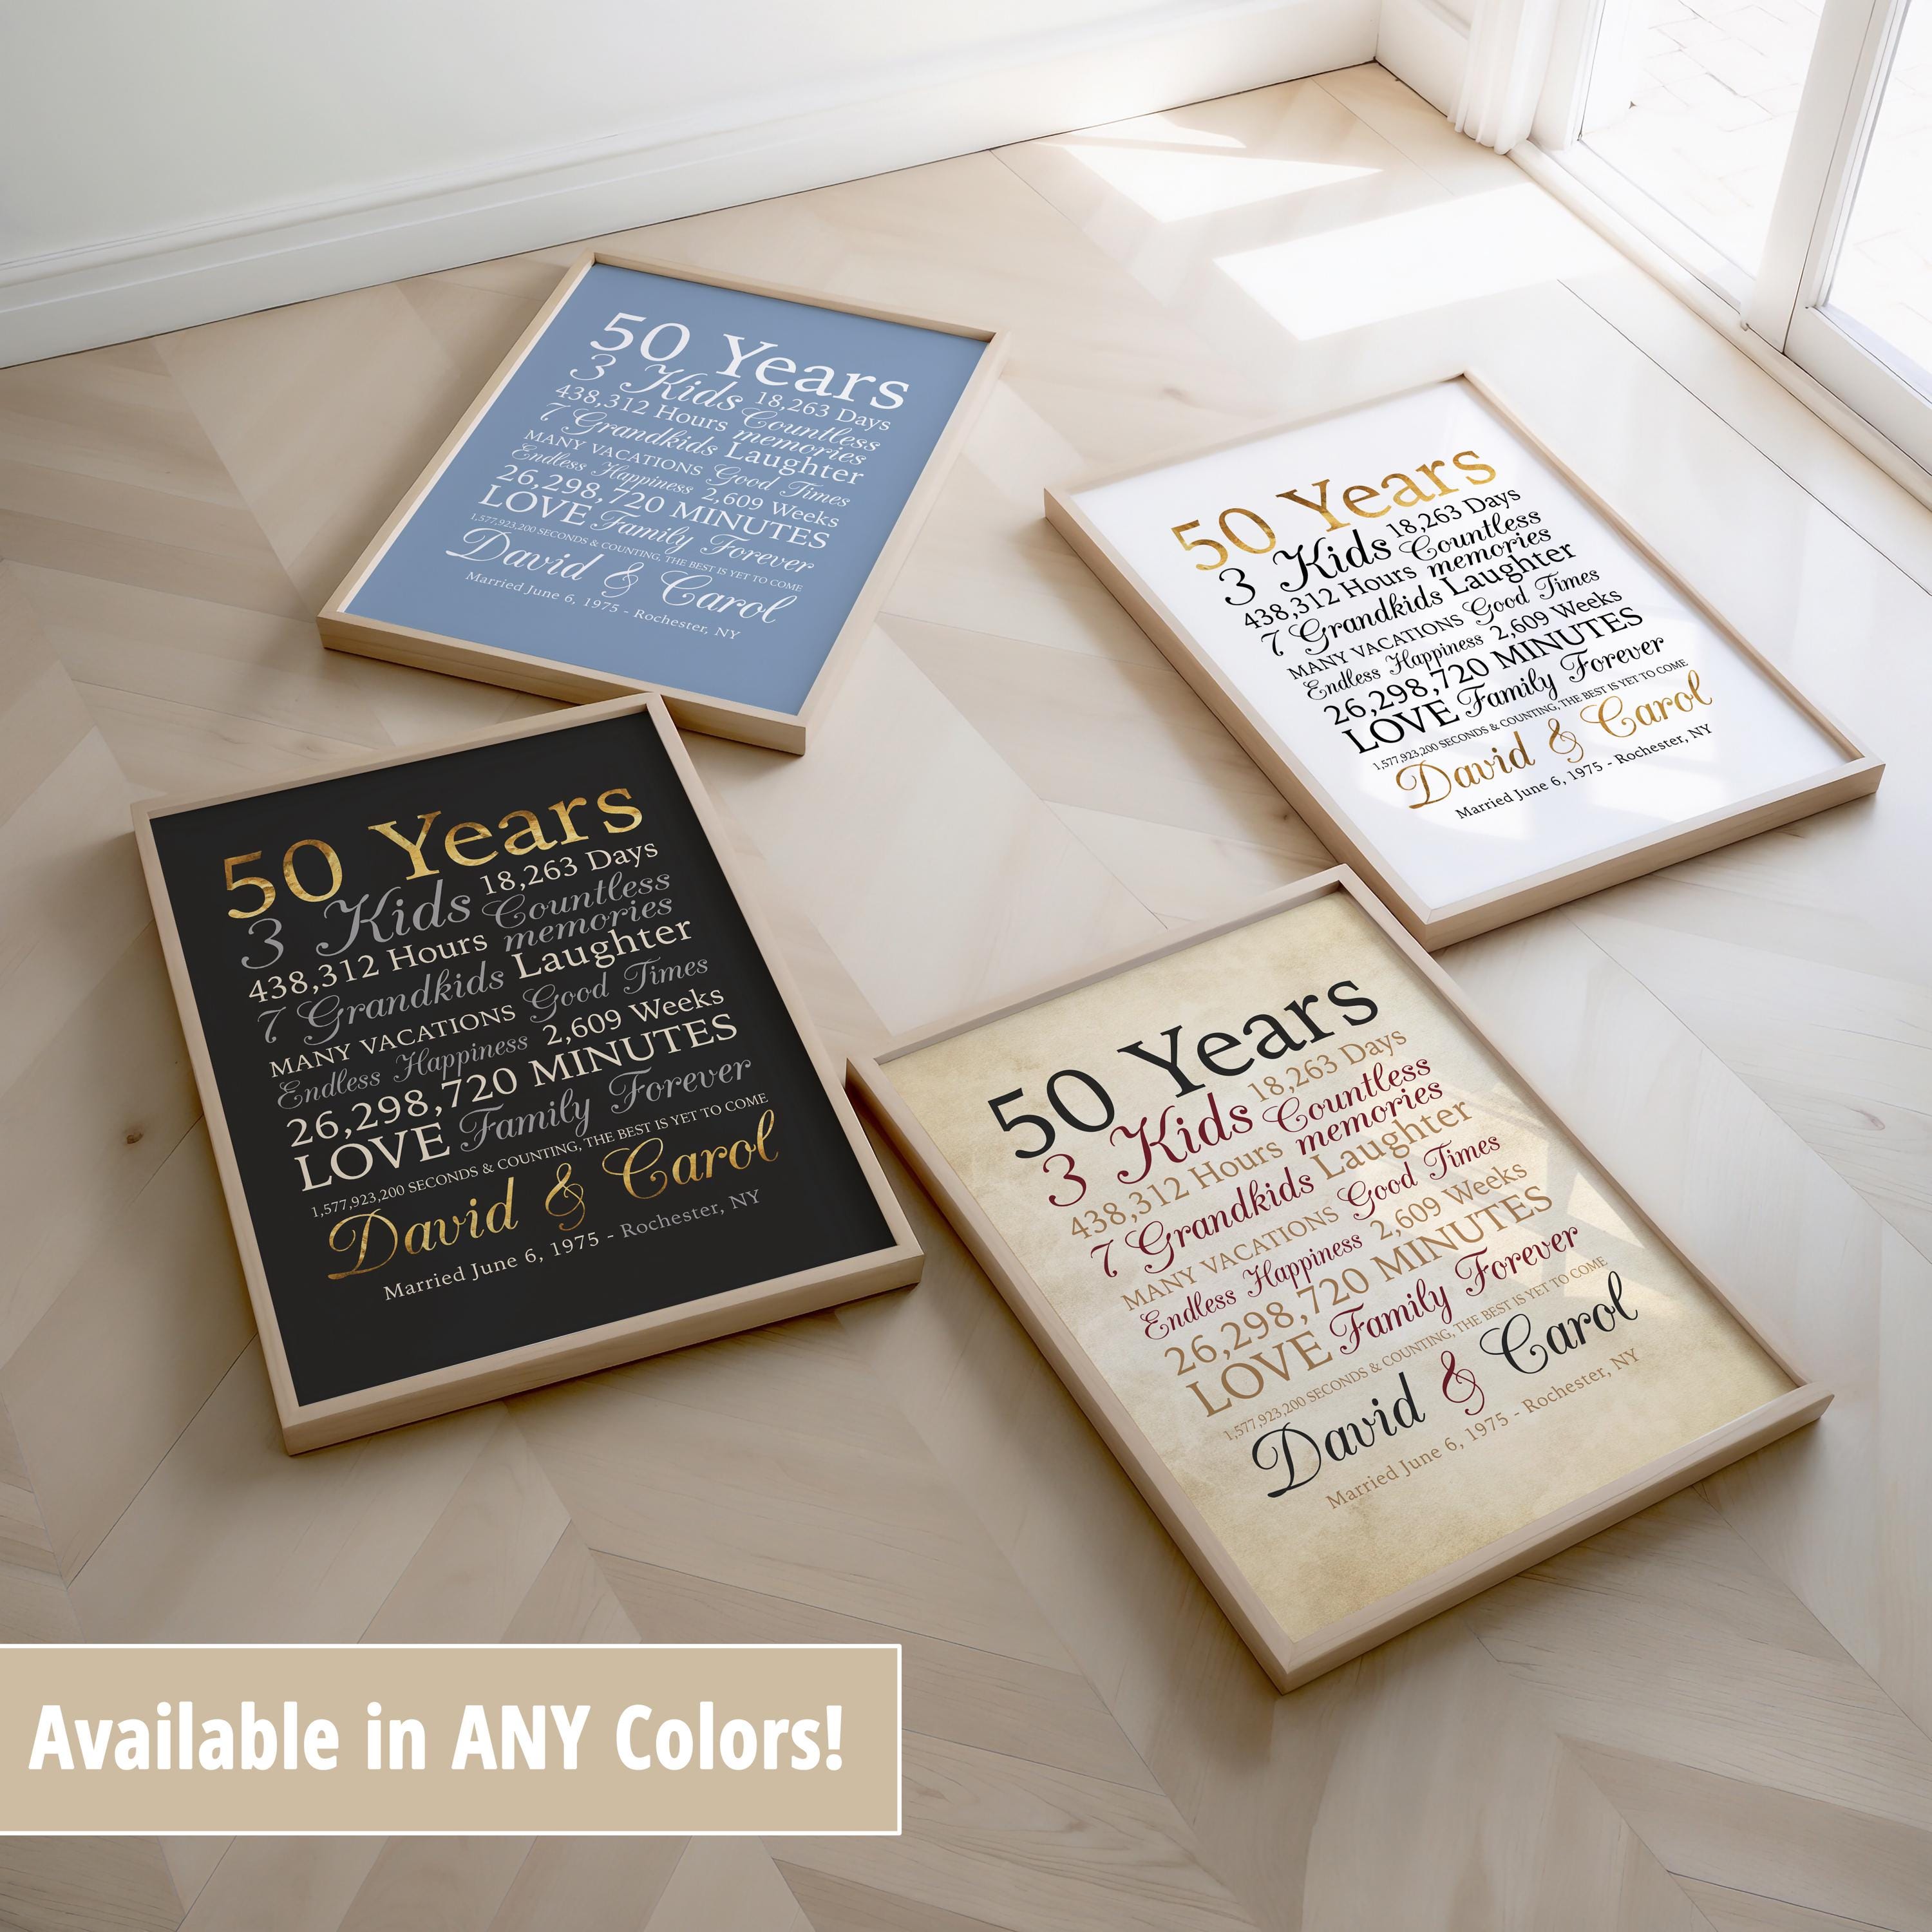 50 Years
3 Kids 18,263 Days
438,312 Hours Countless memories
7 Grandkids Laughter
MANY VACATIONS Good Times
Endless Happiness 2,609 Weeks
26,298,720 MINUTES
LOVE Family Forever
1,577,923,200 SECONDS & COUNTING, THE BEST IS YET TO COME
David & Carol
Married June 6, 1975 - Rochester, NY
50 Years
3 Kids 18,263 Days
438,312 Hours Countless memories
7 Grandkids Laughter
MANY VACATIONS Good Times
Endless Happiness 2,609 Weeks
26,298,720 MINUTES
LOVE Family Forever
1,577,923,200 SECONDS & COUNTING, THE BEST IS YET TO COME
David & Carol
Married June 6, 1975 - Rochester, NY
50 Years
3 Kids 18,263 Days
438,312 Hours Countless memories
7 Grandkids Laughter
MANY VACATIONS Good Times
Endless Happiness 2,609 Weeks
26,298,720 MINUTES
LOVE Family Forever
1,577,923,200 SECONDS & COUNTING, THE BEST IS YET TO COME
David & Carol
Married June 6, 1975 - Rochester, NY
50 Years
3 Kids 18,263 Days
438,312 Hours Countless memories
7 Grandkids Laughter
MANY VACATIONS Good Times
Endless Happiness 2,609 Weeks
26,298,720 MINUTES
LOVE Family Forever
1,577,923,200 SECONDS & COUNTING, THE BEST IS YET TO COME
David & Carol
Married June 6, 1975 - Rochester, NY
Available in ANY Colors!